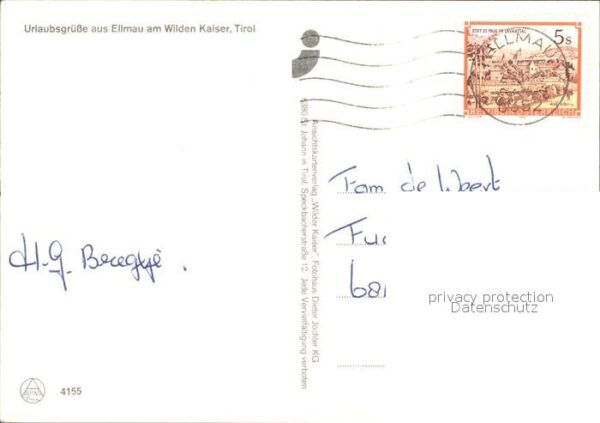 Urlaubsgrüße aus Ellmau am Wilden Kaiser, Tirol
5s
STIFT ST. PAUL IM LAVANTTAL
ELLMAU
REPUBLIK ÖSTERREICH
Ansichtskartenverlag „Wilder Kaiser", Fotohaus Dieter Jöchler KG
6380 St. Johann in Tirol, Speckbacherstraße 12. Jede Vervielfältigung verboten
Fam de Wert
H-G.
privacy protection
Datenschutz
4155